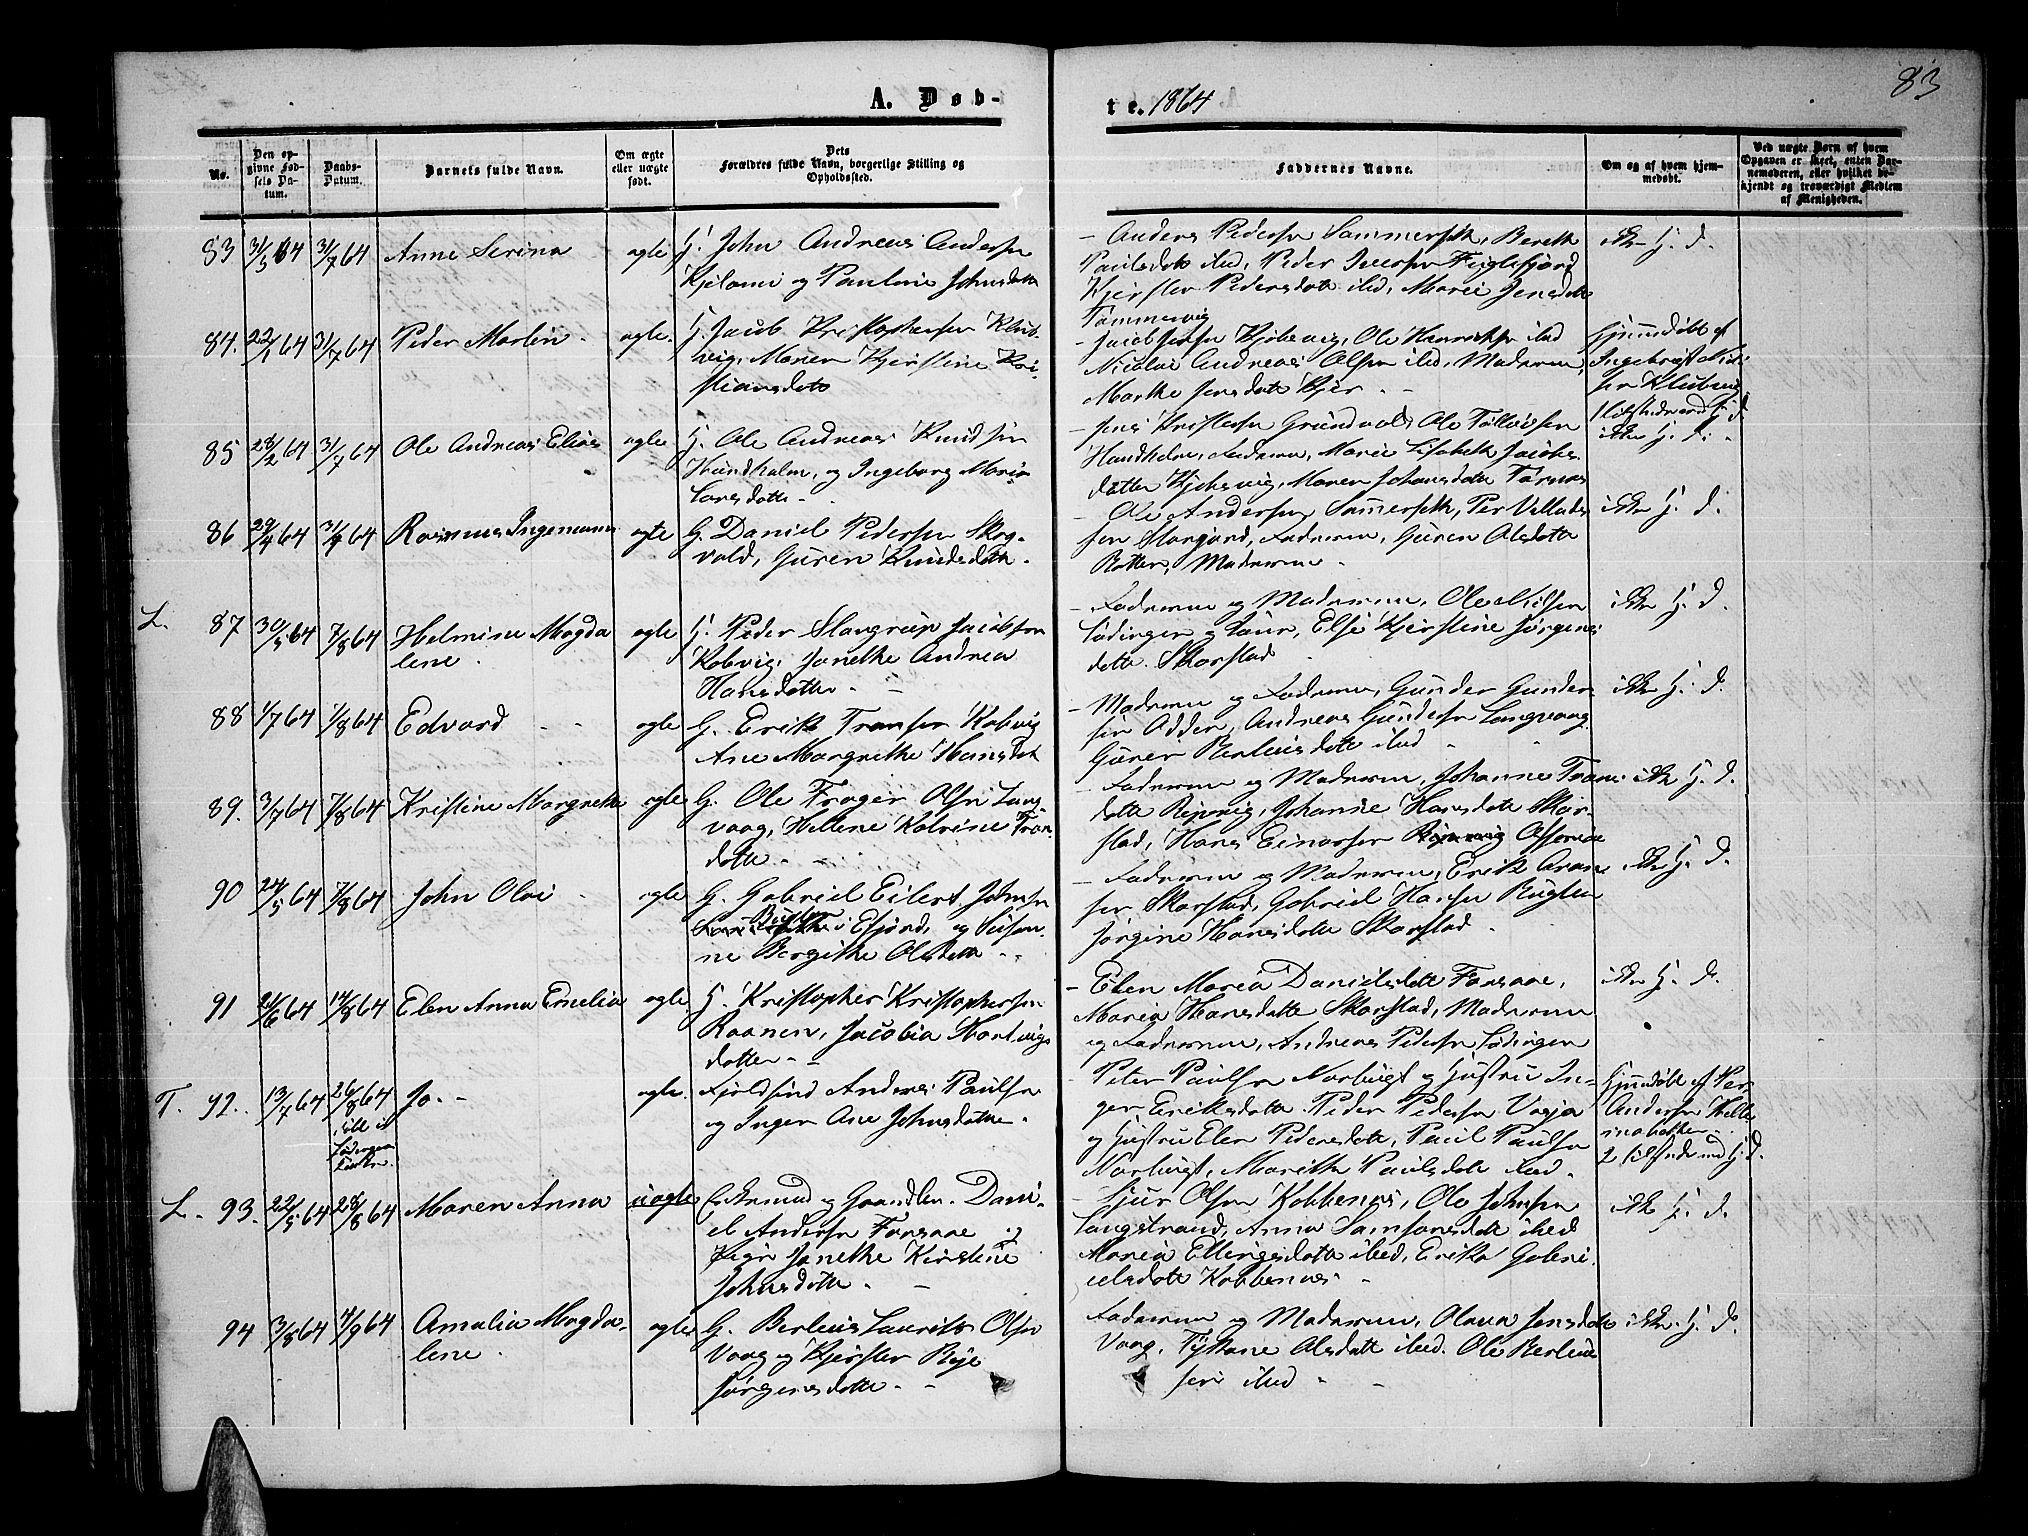 83
A. Døb-
te. 1864
No.
Den op-
givne Fød-
sels Da-
tum.
Daabs-
Datum.
Barnets fulde Navn.
Om ægte
eller uægte
født.
Dets
Forældres fulde Navn, borgerlige Stilling og
Opholdssted.
Faddernes Navne.
Om og af hvem hjem-
medøbt.
Ved uægte Børn af hvem
Opgaven er skeet, enten Bar-
nemoderen, eller hvilket be-
kjendt og troværdigt Medlem
af Menigheden.
83 31/5 64 31/7 64 Anne Serina ægte G. John Andreas Andersen
og Pauline Johnsdatter
- Anders Pedersen Sommersæth, Bereth
Paulsdatter ibid, Peder Iversen
Kjersten Pedersdatte ibid, Marie Jensdatte
Tømmervig
ikke Hj. D.
84. 22/1 64 31/7 64 Peder Martin ægte. G. Jacob Kristophersen Klub-
vig, Maren Kjerstine Kri-
stiansdatte
- Jacob Kjøbsvig, Ole Henriksen ibid
Nicolai Andreas Olsen ibid, Moderen,
Marthe Jensdatte Kjær
Hjemmedøbt af
Ingebrigt
Klubvig
85 28/2 64 31/7 64 Ole Andreas Elias ægte G. Ole Andreas Knudsen
Hundholm, og Ingeborg Maria
Larsdatte
- Jens Kristensen Grundvold, Ole
Hundholm, Faderen, Marie Lisabeth Jacobs
datter Kjøbsvig, Maren Johansdatte
ikke Hj. D.
86 29/4 64 31/7 64 Rasmus Ingemann ægte G. Daniel Pedersen Skog-
vold, Guren Knudsdatte.
- Ole Andersen Sommersæth, Per
sen Storjord, Faderen, Guren Olsdatte
Moderen
ikke Hj. D.
L. 87 30/5 64 7/8 64 Helmine Magda
lene. ægte G. Peder Slangrup Jacobsen
Kobvig, Janethe Andrea
Hansdatter.
- Faderen og Moderen, Ole Nilsen
Lødingen og Else Kjerstine Jørgens
datte Skarstad
ikke Hj. D.
88 1/7 64 7/8 64 Edvard ægte G. Erik Transen Kobvig
Ane Margrethe Hansdat
- Moderen og Faderen, Gunder Gunder
sen Andreas Gundersen Langvaag
Guren Berleusdatte ibid
ikke Hj. D.
89. 3/7 64 7/8 64 Kristine Margrethe ægte G. Ole Olsen Lang-
vaag, Hellene Katrine Trans-
datte
- Faderen og Moderen, Johanne Trans
datte Johanne Hansdatte Skar-
stad, Hans Einarsen
ikke Hj. D.
90 24/5 64 7/8 64 John Oloi ægte G. Gabriel Eilert Johnsen
Efjord, og Susan-
ne Bergithe Olsdatte
- Faderen og Moderen, Erik
sen Skarstad, Gabriel Hansen
Jørgine Hansdatte Skarstad
ikke Hj. D.
91 24/6 64 14/8 64 Elen Anna Emelia ægte G. Kristopher Kristophersen
Raanen, Jacobia Hartvigs
datter
- Elen Maria Danielsdatte Forsaae,
Maria Hansdatte Skarstad, Moderen
og Faderen, Andreas Pedersen Lødingen
ikke Hj. D.
T. 92. 13/7 64 26/8 64 Jo. ægte. Fjeldfind Andreas Paulsen
og Inger Ane Johnsdatte.
- Peter Paulsen Norbugt og Hustru In-
ger Eriksdatte. Peder Pedersen
og Hustru Elen Pedersdatte, Paul Paulsen
Norbugt, Marith Paulsdatte ibid.
Hjemmedøbt af Per
Andersen Helle
L. 93. 22/5 64 28/8 64 Maren Anna uægte Enkemand og Gaardbr. Dani-
el Andersen Forsaae og
Pige Janethe Kirstine
Johnsdatte.
- Sjur Olsen Kobbenes, Ole Johnsen
Langstrand, Anna Samsonsdatte ibid
Maria Ellingsdatte ibid, Erika Gabri-
elsdatte Kobbenes
ikke Hj. D.
94 3/8 64 4/9 64 Amalia Magda-
lene. ægte G. Berleus Laurits Olsen
Vaag og Kjersten Beje
Jørgensdatte.
Faderen og Moderen, Olava Jensdatte
Vaag, Olsdatte ibid. Ole Berleus
sen ibid
ikke. Hj. D.